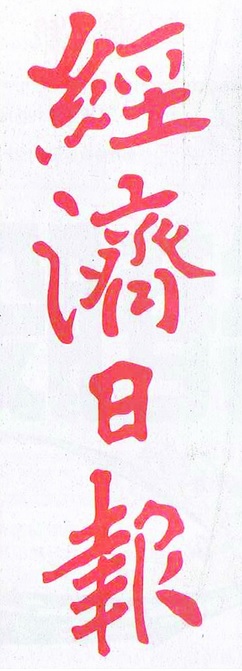 經濟日報